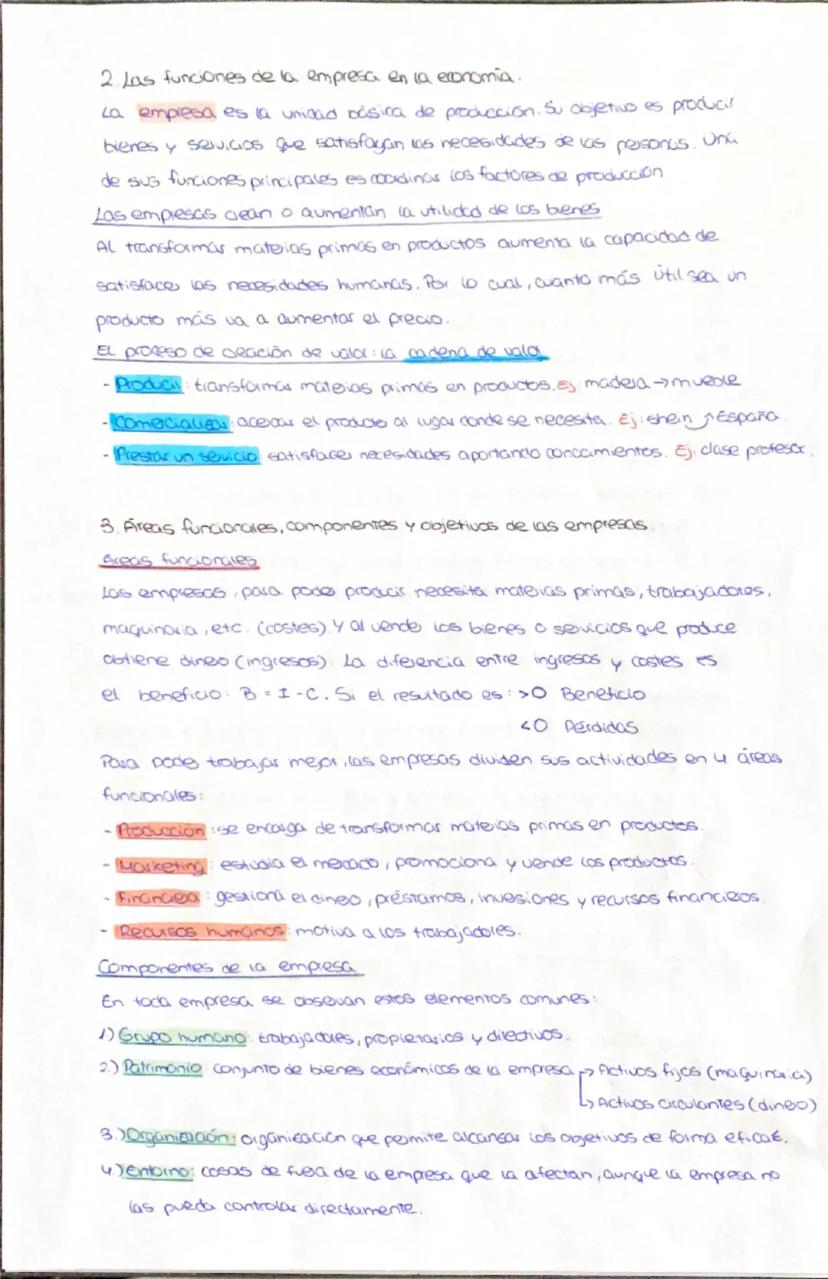 2. Las funciones de la empresa en la economía.
La empresa es la unidad básica de producción. Su objetivo es producir
bienes y servicios que satisfagan las necesidades de las personas. Una
de sus funciones principales es coordinar los factores de producción.
Las empresas crean o aumentan la utilidad de los bienes
Al transformar materias primas en productos aumenta la capacidad de
satisfacer las necesidades humanas. Por lo cual, cuanto más útil sea un
producto más va a aumentar el precio.
El proceso de creación de valor: la cadena de valor
- Producir: transformar materias primas en productos. Ej: madera → mueble
- Comercializar: acercar el producto al lugar donde se necesita. Ej: shein España.
- Prestar un servicio: satisfacer necesidades aportando conocimientos. Ej: clase profesor.
3. Áreas funcionales, componentes y objetivos de las empresas.
Áreas funcionales
Las empresas, para poder producir necesita materias primas, trabajadores,
maquinaria, etc. (costes). Y al vender los bienes o servicios que produce
obtiene dinero (ingresos). La diferencia entre ingresos y costes es
el beneficio: B = I - C. Si el resultado es: >0 Beneficio
<0 Pérdidas
Para poder trabajar mejor, las empresas dividen sus actividades en 4 áreas
funcionales:
- Producción: se encarga de transformar materias primas en productos.
- Marketing: estudia el mercado, promociona y vende los productos.
- Financiera: gestiona el dinero, préstamos, inversiones y recursos financieros.
- Recursos humanos: motiva a los trabajadores.
Componentes de la empresa
En toda empresa se observan estos elementos comunes:
1) Grupo humano: trabajadores, propietarios y directivos.
2.) Patrimonio: conjunto de bienes económicos de la empresa → Activos fijos (maquinaria)
↳ Activos circulantes (dinero)
3.) Organización: organización que permite alcanzar los objetivos de forma eficaz.
4.) Entorno: cosas de fuera de la empresa que la afectan, aunque la empresa no
las pueda controlar directamente.